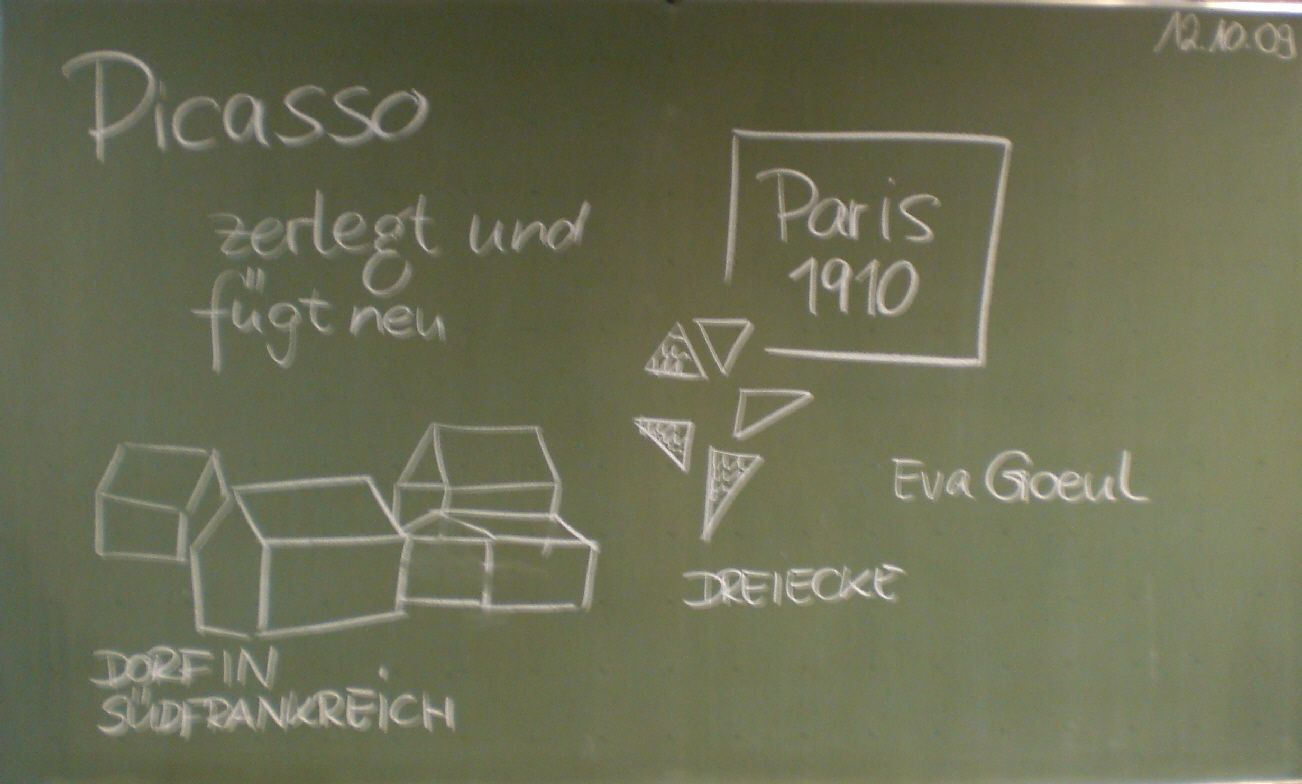 12.10.09
Picasso
zerlegt und
fügt neu
Paris
1910
Eva Goeul
DREIECKE
DORF IN
SÜDFRANKREiCH